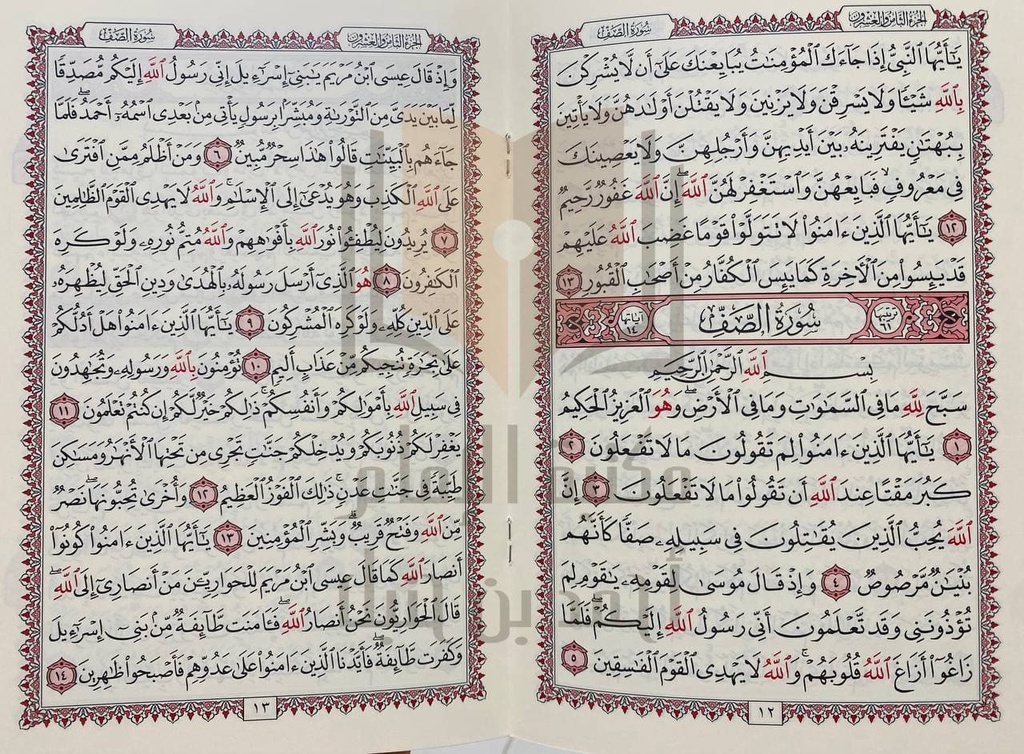 الجزء الثامن والعشرون
سُورَةُ الصَّفِّ
يَٰٓأَيُّهَا ٱلنَّبِيُّ إِذَا جَآءَكَ ٱلْمُؤْمِنَٰتُ يُبَايِعْنَكَ عَلَىٰٓ أَن لَّا يُشْرِكْنَ
بِٱللَّهِ شَيْـًٔا وَلَا يَسْرِقْنَ وَلَا يَزْنِينَ وَلَا يَقْتُلْنَ أَوْلَٰدَهُنَّ وَلَا يَأْتِينَ
بِبُهْتَٰنٍ يَفْتَرِينَهُۥ بَيْنَ أَيْدِيهِنَّ وَأَرْجُلِهِنَّ وَلَا يَعْصِينَكَ
فِى مَعْرُوفٍ فَبَايِعْهُنَّ وَٱسْتَغْفِرْ لَهُنَّ ٱللَّهَ إِنَّ ٱللَّهَ غَفُورٌ رَّحِيمٌ
١٢ يَٰٓأَيُّهَا ٱلَّذِينَ ءَامَنُوا۟ لَا تَتَوَلَّوْا۟ قَوْمًا غَضِبَ ٱللَّهُ عَلَيْهِمْ
قَدْ يَئِسُوا۟ مِنَ ٱلْءَاخِرَةِ كَمَا يَئِسَ ٱلْكُفَّارُ مِنْ أَصْحَٰبِ ٱلْقُبُورِ ١٣
ترتيبها ٦١ سُورَةُ الصَّفِّ آياتها ١٤
بِسْمِ ٱللَّهِ ٱلرَّحْمَٰنِ ٱلرَّحِيمِ
سَبَّحَ لِلَّهِ مَا فِى ٱلسَّمَٰوَٰتِ وَمَا فِى ٱلْأَرْضِ وَهُوَ ٱلْعَزِيزُ ٱلْحَكِيمُ
١ يَٰٓأَيُّهَا ٱلَّذِينَ ءَامَنُوا۟ لِمَ تَقُولُونَ مَا لَا تَفْعَلُونَ ٢
كَبُرَ مَقْتًا عِندَ ٱللَّهِ أَن تَقُولُوا۟ مَا لَا تَفْعَلُونَ ٣ إِنَّ
ٱللَّهَ يُحِبُّ ٱلَّذِينَ يُقَٰتِلُونَ فِى سَبِيلِهِۦ صَفًّا كَأَنَّهُم
بُنْيَٰنٌ مَّرْصُوصٌ ٤ وَإِذْ قَالَ مُوسَىٰ لِقَوْمِهِۦ يَٰقَوْمِ لِمَ
تُؤْذُونَنِى وَقَد تَّعْلَمُونَ أَنِّى رَسُولُ ٱللَّهِ إِلَيْكُمْ فَلَمَّا
زَاغُوٓا۟ أَزَاغَ ٱللَّهُ قُلُوبَهُمْ وَٱللَّهُ لَا يَهْدِى ٱلْقَوْمَ ٱلْفَٰسِقِينَ ٥
١٢
الجزء الثامن والعشرون
سُورَةُ الصَّفِّ
وَإِذْ قَالَ عِيسَى ٱبْنُ مَرْيَمَ يَٰبَنِىٓ إِسْرَٰٓءِيلَ إِنِّى رَسُولُ ٱللَّهِ إِلَيْكُم مُّصَدِّقًا
لِّمَا بَيْنَ يَدَىَّ مِنَ ٱلتَّوْرَىٰةِ وَمُبَشِّرًۢا بِرَسُولٍ يَأْتِى مِنۢ بَعْدِى ٱسْمُهُۥٓ أَحْمَدُ فَلَمَّا
جَآءَهُم بِٱلْبَيِّنَٰتِ قَالُوا۟ هَٰذَا سِحْرٌ مُّبِينٌ ٦ وَمَنْ أَظْلَمُ مِمَّنِ ٱفْتَرَىٰ
عَلَى ٱللَّهِ ٱلْكَذِبَ وَهُوَ يُدْعَىٰٓ إِلَى ٱلْإِسْلَٰمِ وَٱللَّهُ لَا يَهْدِى ٱلْقَوْمَ ٱلظَّٰلِمِينَ
٧ يُرِيدُونَ لِيُطْفِـُٔوا۟ نُورَ ٱللَّهِ بِأَفْوَٰهِهِمْ وَٱللَّهُ مُتِمُّ نُورِهِۦ وَلَوْ كَرِهَ
ٱلْكَٰفِرُونَ ٨ هُوَ ٱلَّذِىٓ أَرْسَلَ رَسُولَهُۥ بِٱلْهُدَىٰ وَدِينِ ٱلْحَقِّ لِيُظْهِرَهُۥ
عَلَى ٱلدِّينِ كُلِّهِۦ وَلَوْ كَرِهَ ٱلْمُشْرِكُونَ ٩ يَٰٓأَيُّهَا ٱلَّذِينَ ءَامَنُوا۟ هَلْ أَدُلُّكُمْ
عَلَىٰ تِجَٰرَةٍ تُنجِيكُم مِّنْ عَذَابٍ أَلِيمٍ ١٠ تُؤْمِنُونَ بِٱللَّهِ وَرَسُولِهِۦ وَتُجَٰهِدُونَ
فِى سَبِيلِ ٱللَّهِ بِأَمْوَٰلِكُمْ وَأَنفُسِكُمْ ذَٰلِكُمْ خَيْرٌ لَّكُمْ إِن كُنتُمْ تَعْلَمُونَ ١١
يَغْفِرْ لَكُمْ ذُنُوبَكُمْ وَيُدْخِلْكُمْ جَنَّٰتٍ تَجْرِى مِن تَحْتِهَا ٱلْأَنْهَٰرُ وَمَسَٰكِنَ
طَيِّبَةً فِى جَنَّٰتِ عَدْنٍ ذَٰلِكَ ٱلْفَوْزُ ٱلْعَظِيمُ ١٢ وَأُخْرَىٰ تُحِبُّونَهَا نَصْرٌ
مِّنَ ٱللَّهِ وَفَتْحٌ قَرِيبٌ وَبَشِّرِ ٱلْمُؤْمِنِينَ ١٣ يَٰٓأَيُّهَا ٱلَّذِينَ ءَامَنُوا۟ كُونُوٓا۟
أَنصَارَ ٱللَّهِ كَمَا قَالَ عِيسَى ٱبْنُ مَرْيَمَ لِلْحَوَارِيِّـۧنَ مَنْ أَنصَارِىٓ إِلَى ٱللَّهِ
قَالَ ٱلْحَوَارِيُّونَ نَحْنُ أَنصَارُ ٱللَّهِ فَـَٔامَنَت طَّآئِفَةٌ مِّنۢ بَنِىٓ إِسْرَٰٓءِيلَ
وَكَفَرَت طَّآئِفَةٌ فَأَيَّدْنَا ٱلَّذِينَ ءَامَنُوا۟ عَلَىٰ عَدُوِّهِمْ فَأَصْبَحُوا۟ ظَٰهِرِينَ ١٤
١٣